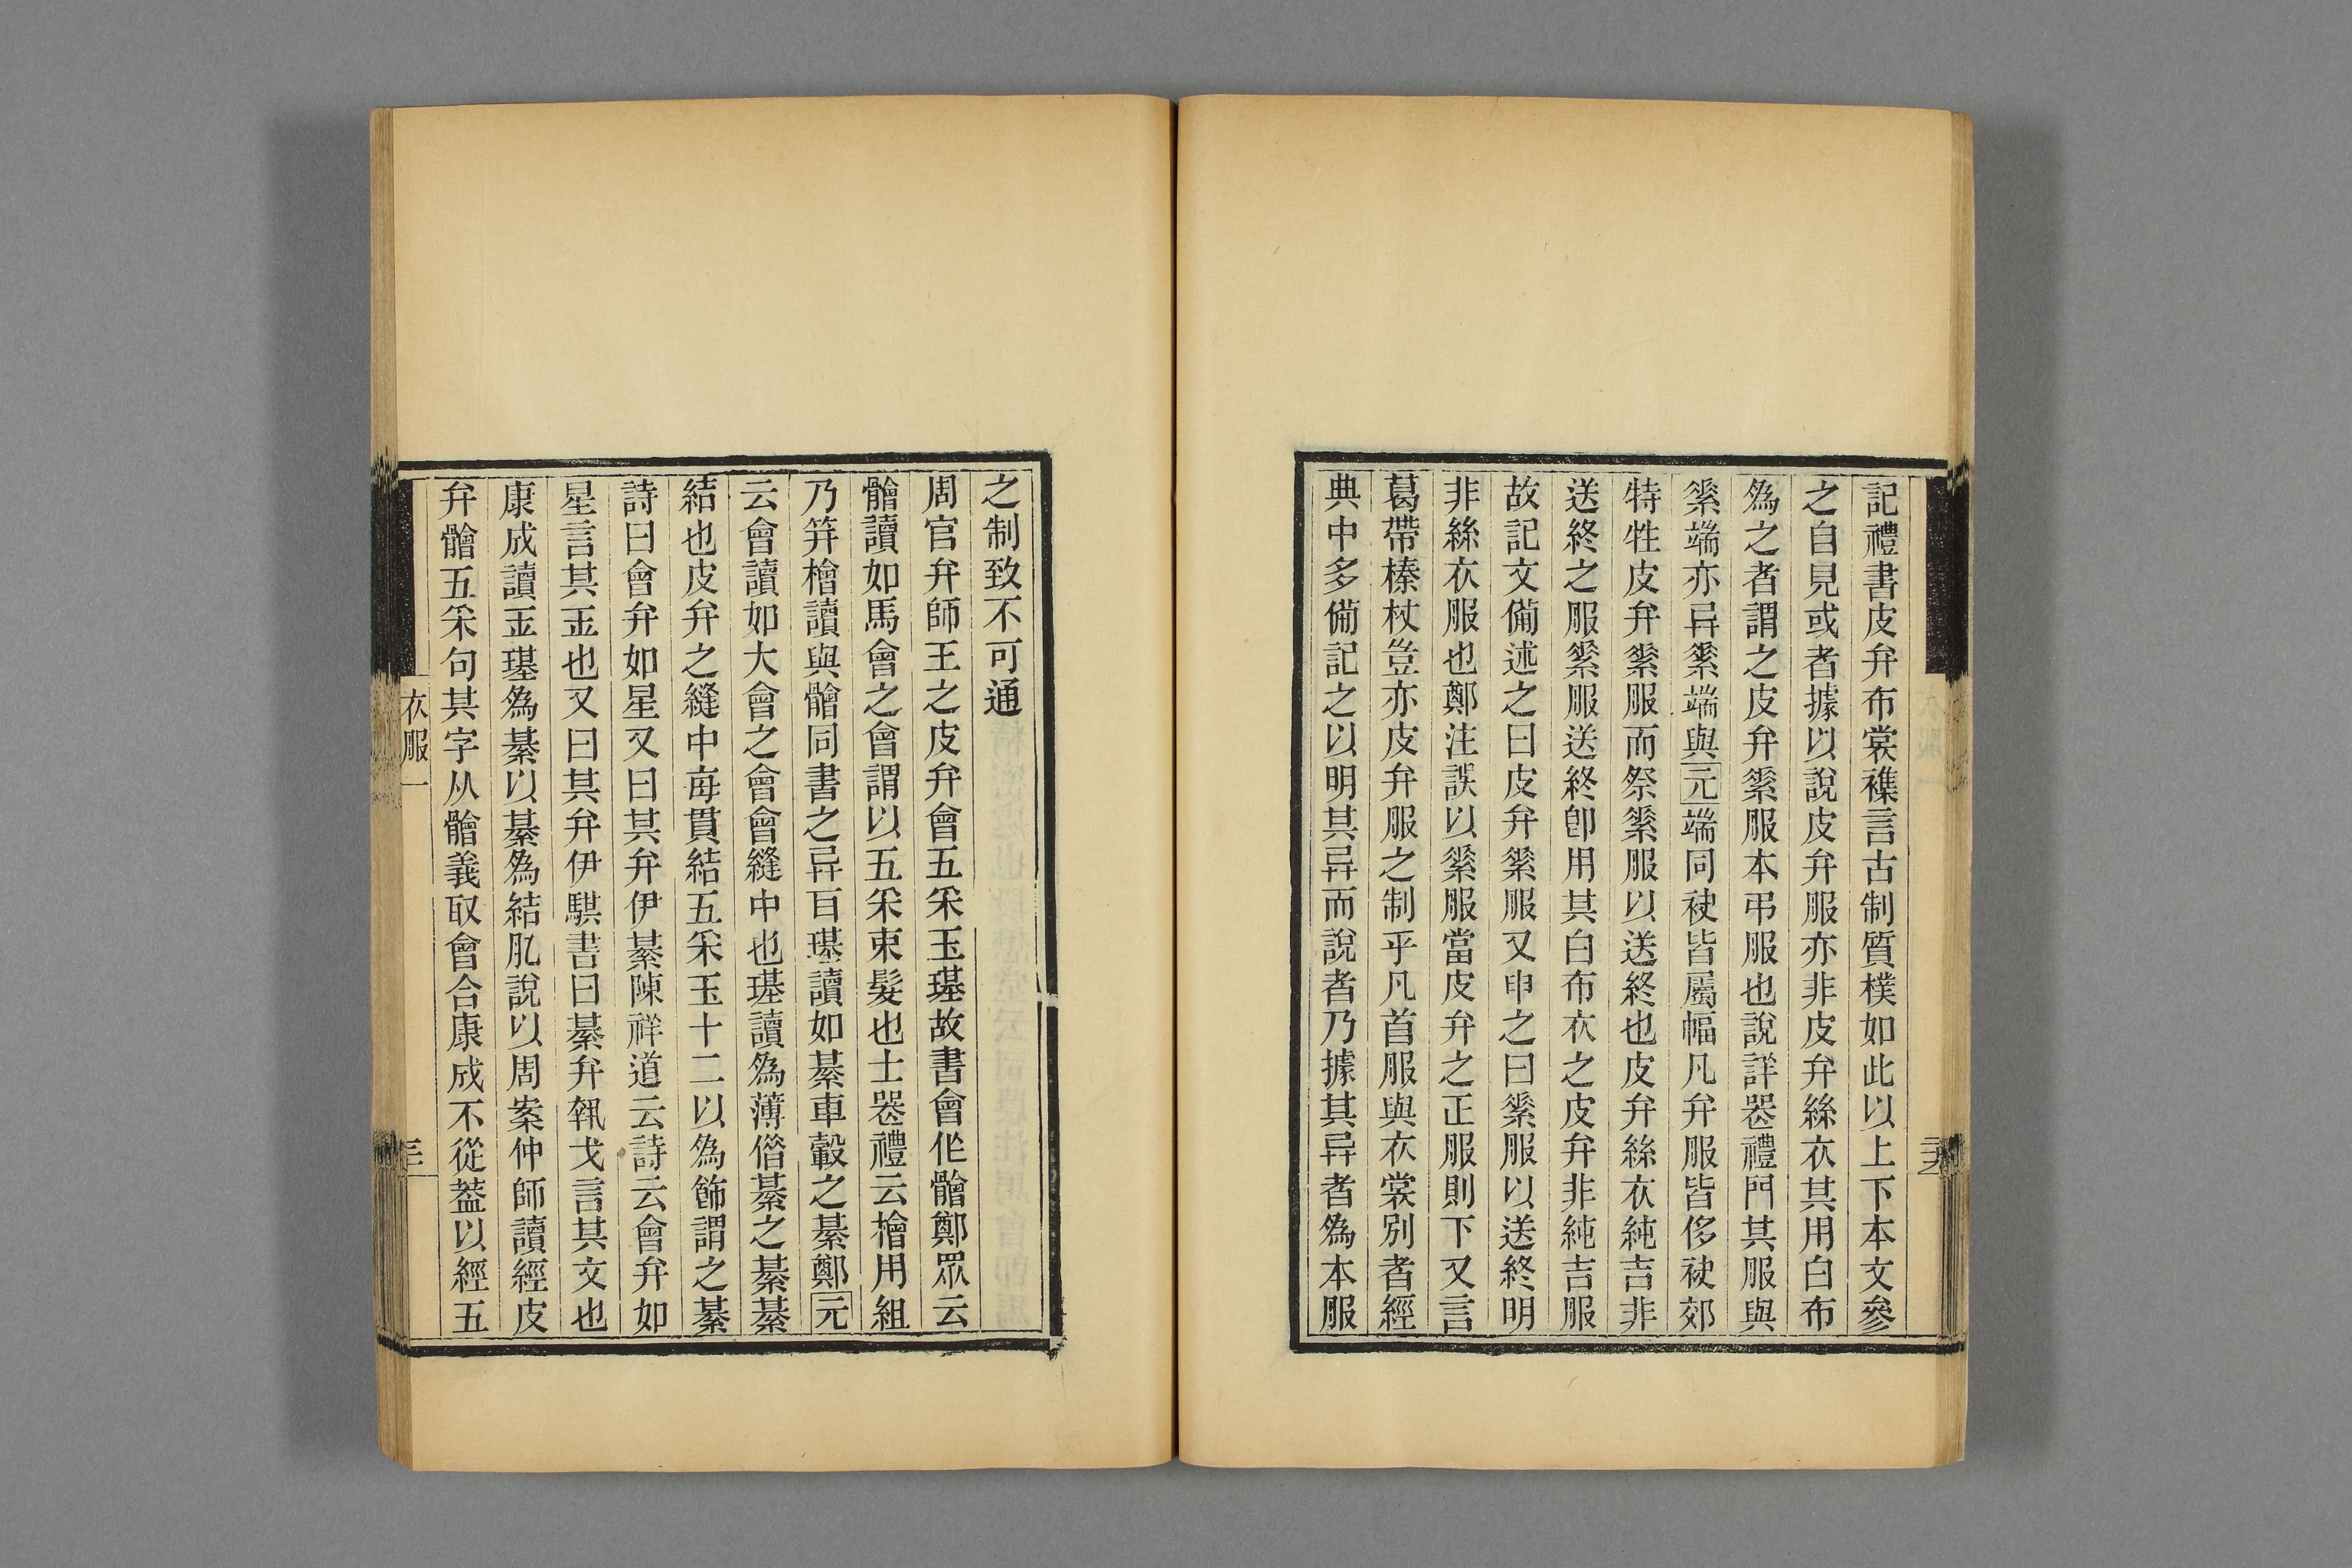 記禮書皮弁布裳襍言古制質樸如此以上下本文參
之自見或者據以說皮弁服亦非皮弁絲衣其用白布
爲之者謂之皮弁絫服本弔服也說詳器禮門其服與
絫端亦异絫端與元端同袂皆屬幅凡弁服皆侈袂郊
特牲皮弁絫服而祭絫服以送終也皮弁絲衣純吉非
送終之服絫服送終卽用其白布衣之皮弁非純吉服
故記文備述之曰皮弁絫服又申之曰絫服以送終明
非絲衣服也鄭注誤以絫服當皮弁之正服則下又言
葛帶榛杖豈亦皮弁服之制乎凡首服與衣裳別者經
典中多備記之以明其异而說者乃據其异者爲本服
之制致不可通
周官弁師王之皮弁會五采玉璂故書會作䯤鄭眾云
䯤讀如馬會之會謂以五采束髮也士器禮云檜用組
乃笄檜讀與䯤同書之异百璂讀如綦車轂之綦鄭元
云會讀如大會之會會縫中也璂讀爲薄僭綦之綦綦
結也皮弁之縫中每貫結五采玉十二以爲飾謂之綦
詩曰會弁如星又曰其弁伊綦陳祥道云詩云會弁如
星言其玉也又曰其弁伊騏書曰綦弁執戈言其文也
康成讀玉璂爲綦以綦爲結肊說以周案仲師讀經皮
弁䯤五采句其字从䯤義取會合康成不從葢以經五
衣服一